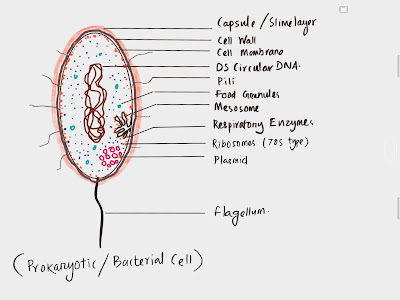 Capsule/Slime layer
Cell Wall
Cell Membrane
DS Circular DNA.
Pili
Food Granules
Mesosome
Respiratory Enzymes
Ribosomes (70s type)
Plasmid
flagellum.
(Prokaryotic/Bacterial Cell)